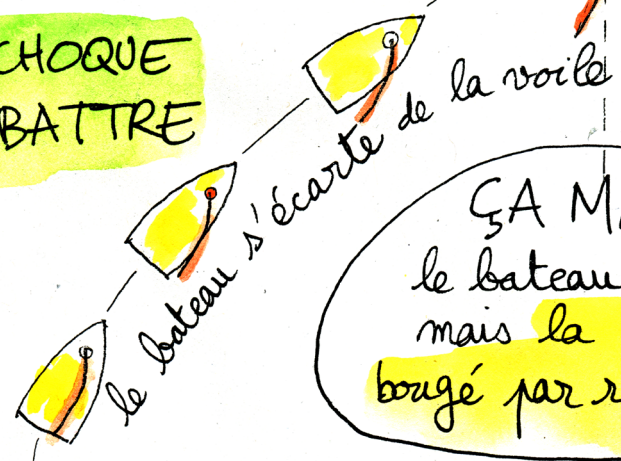 CHOQUE
BATTRE
le bateau s'écarte de la voile
ÇA
le bateau
mais la
bougé par